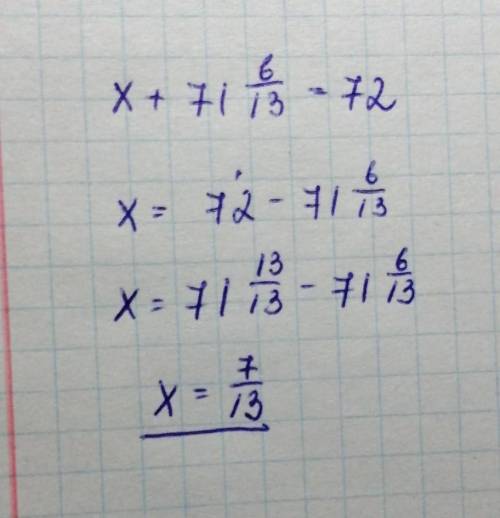 x + 71 6/13 = 72
x = 72 - 71 6/13
x = 71 13/13 - 71 6/13
x = 7/13